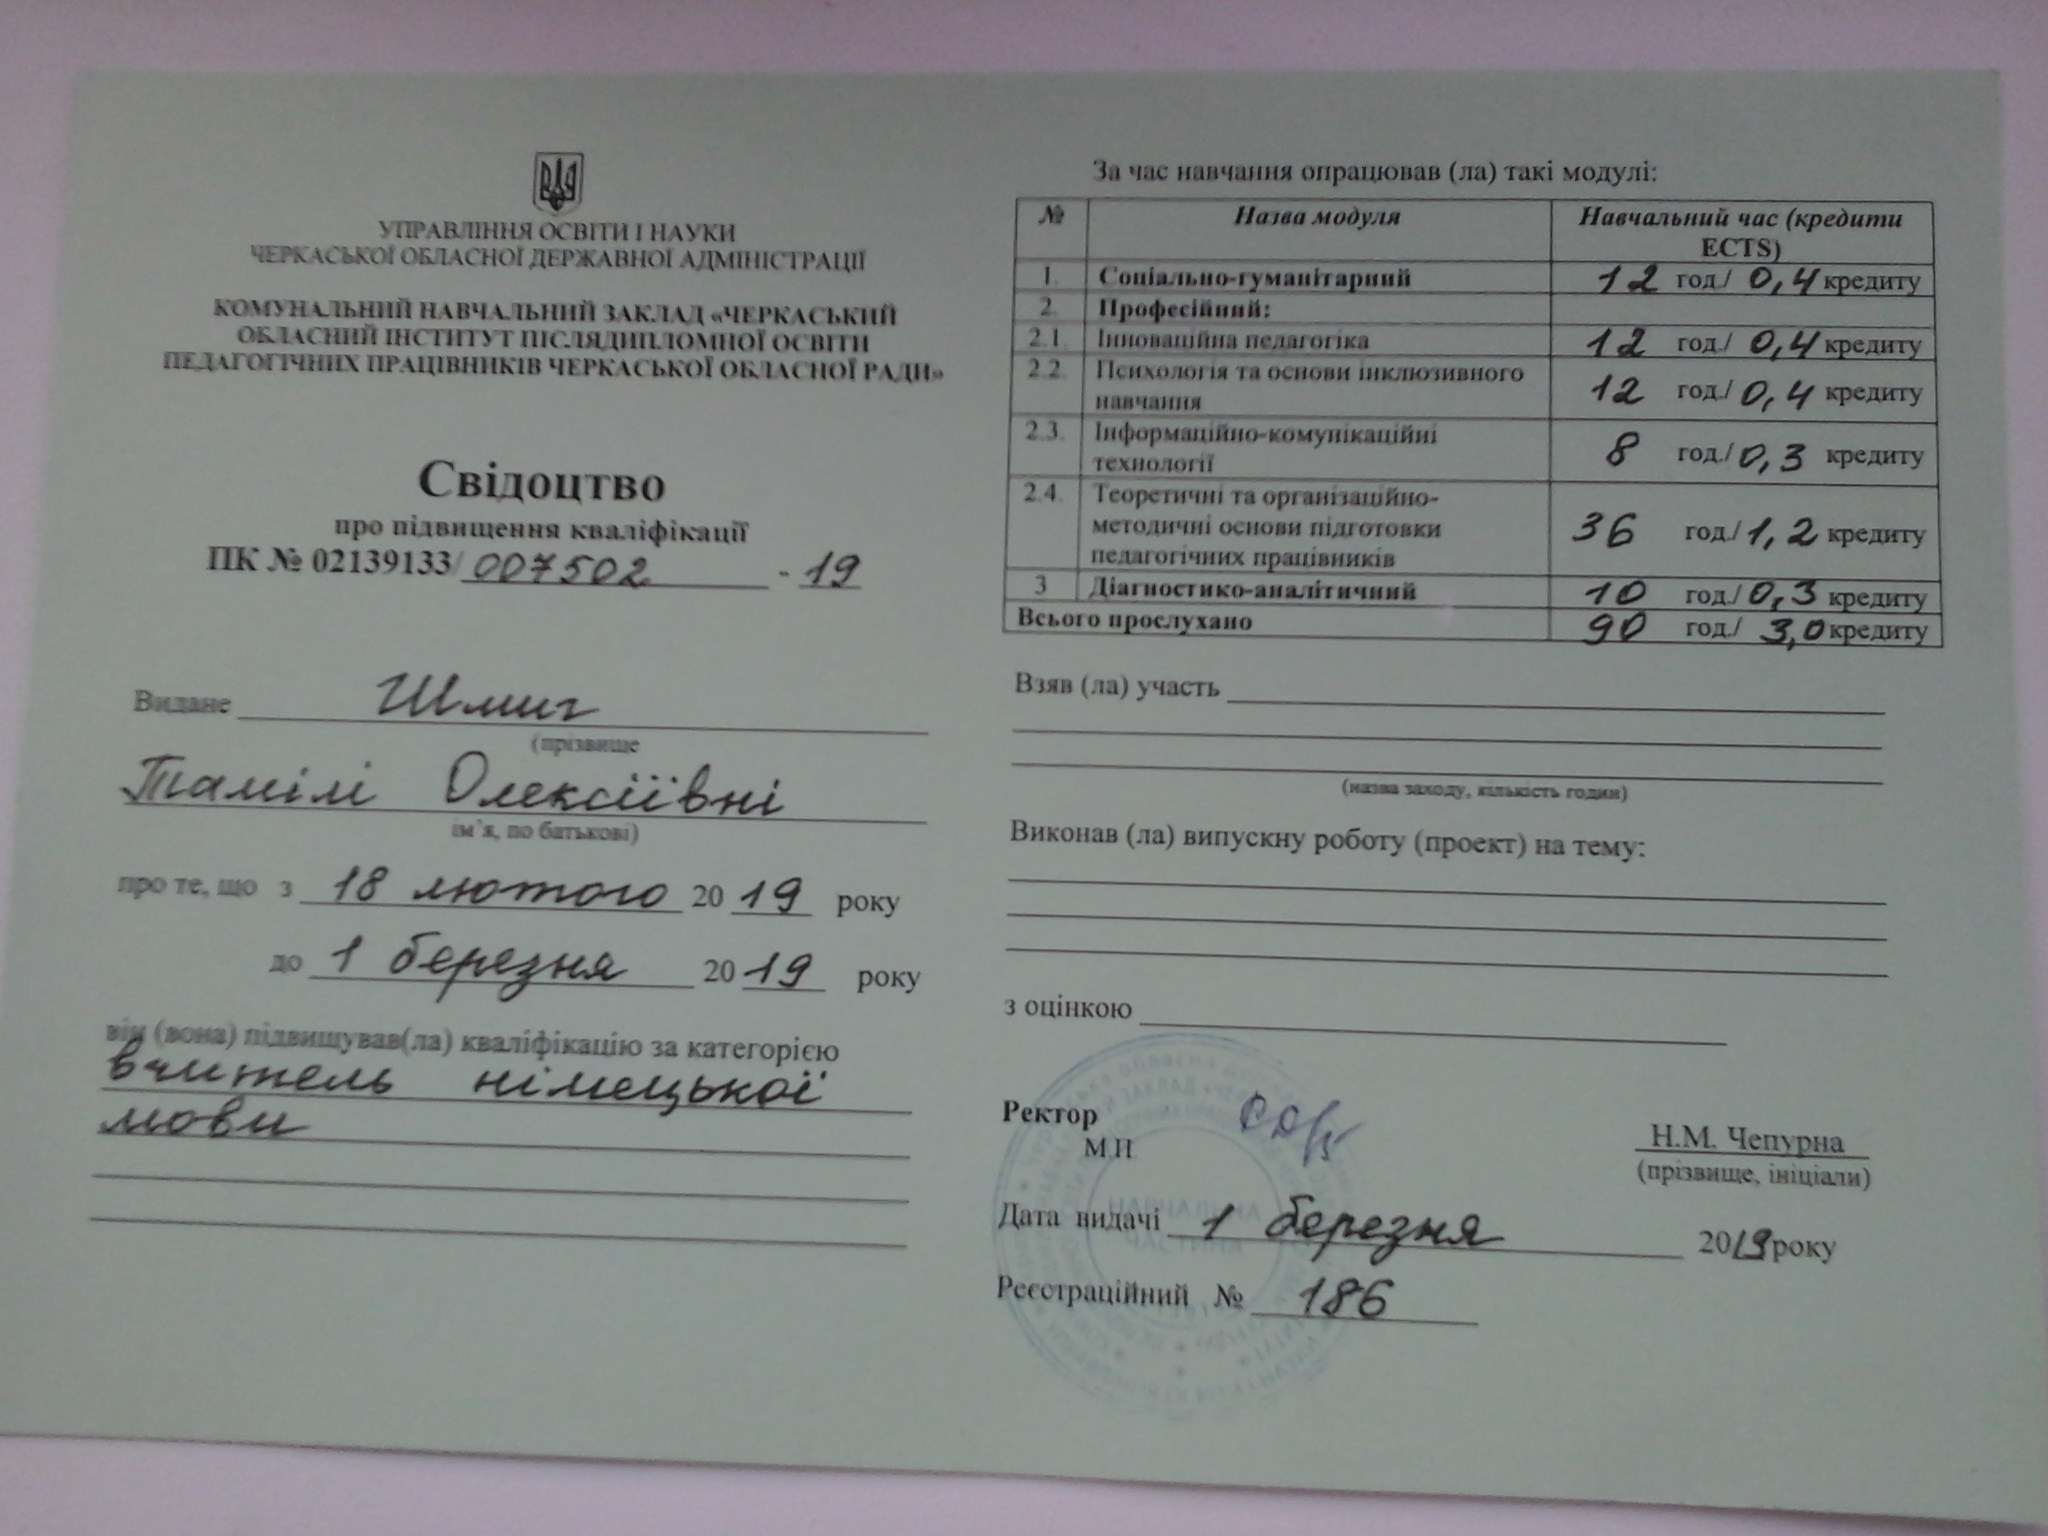 УПРАВЛІННЯ ОСВІТИ І НАУКИ
ЧЕРКАСЬКОЇ ОБЛАСНОЇ ДЕРЖАВНОЇ АДМІНІСТРАЦІЇ
КОМУНАЛЬНИЙ НАВЧАЛЬНИЙ ЗАКЛАД «ЧЕРКАСЬКИЙ
ОБЛАСНИЙ ІНСТИТУТ ПІСЛЯДИПЛОМНОЇ ОСВІТИ
ПЕДАГОГІЧНИХ ПРАЦІВНИКІВ ЧЕРКАСЬКОЇ ОБЛАСНОЇ РАДИ»
Свідоцтво
про підвищення кваліфікації
ПК № 02139133/ 007502 - 19
Видане Шмиг
(прізвище
Тамілі Олексіївні
ім’я, по батькові)
про те, що з 18 лютого 20 19 року
до 1 березня 20 19 року
він (вона) підвищував(ла) кваліфікацію за категорією
вчитель німецької
мови
За час навчання опрацював (ла) такі модулі:
№ Назва модуля Навчальний час (кредити
ECTS)
1. Соціально-гуманітарний 12 год./ 0,4 кредиту
2. Професійний:
2.1. Інноваційна педагогіка 12 год./ 0,4 кредиту
2.2. Психологія та основи інклюзивного
навчання 12 год./ 0,4 кредиту
2.3. Інформаційно-комунікаційні
технології 8 год./ 0,3 кредиту
2.4. Теоретичні та організаційно-
методичні основи підготовки 36 год./ 1,2 кредиту
педагогічних працівників
3 Діагностико-аналітичний 10 год./ 0,3 кредиту
Всього прослухано 90 год./ 3,0 кредиту
Взяв (ла) участь
(назва заходу, кількість годин)
Виконав (ла) випускну роботу (проект) на тему:
з оцінкою
Ректор
М.П.
Н.М. Чепурна
(прізвище, ініціали)
НАВЧАЛЬНА
ЧАСТИНА
Дата видачі 1 березня 2019 року
Реєстраційний № 186